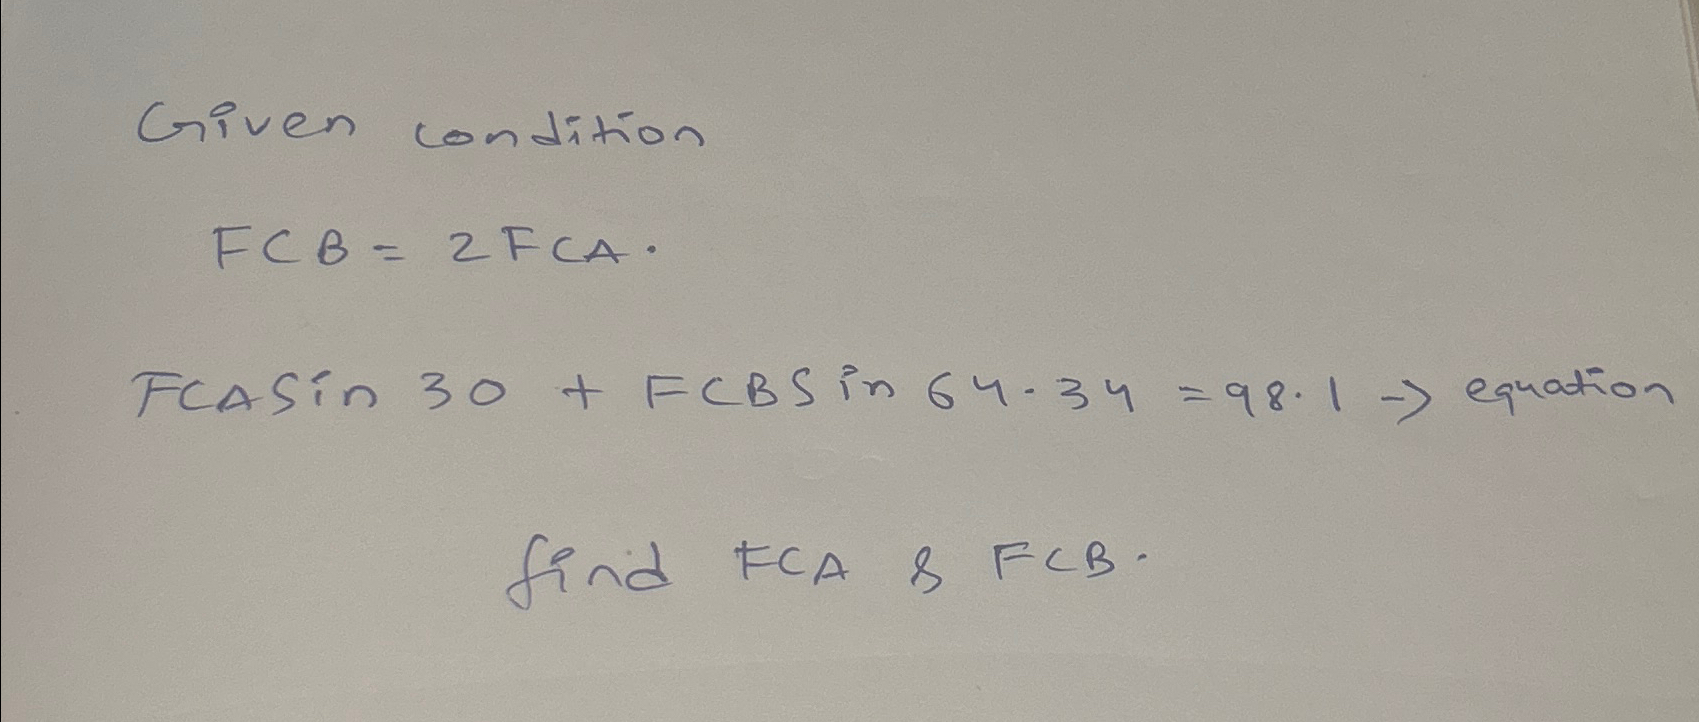 Given condition
FCB = 2 FCA.
FCA Sin 30 + FCB Sin 64.34 = 98.1 -> equation
find FCA & FCB.